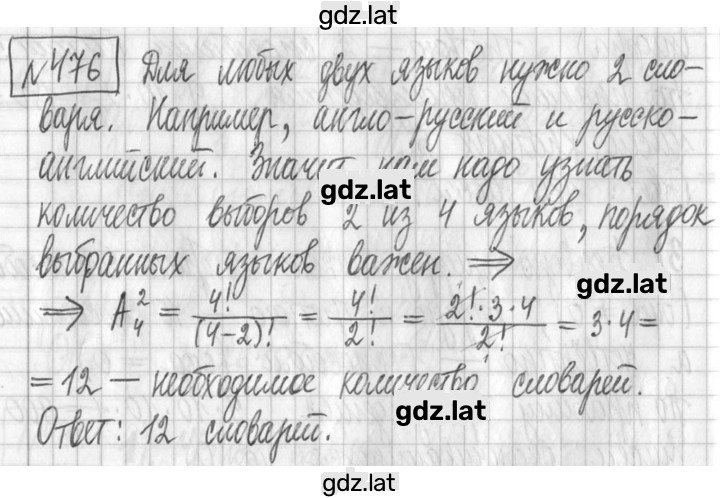 gdz.lat
№476 Для любых двух языков нужно 2 сло-
варя. Например, англо-русский и русско-
английский. Значит нам надо узнать
gdz.lat
количество выборов 2 из 4 языков, порядок
выбранных языков важен. ⇒
gdz.lat
⇒ A₄² = 4!/(4-2)! = 4!/2! = 2!·3·4/2! = 3·4=
=12 — необходимое количество словарей.
gdz.lat
Ответ: 12 словарей.
gdz.lat